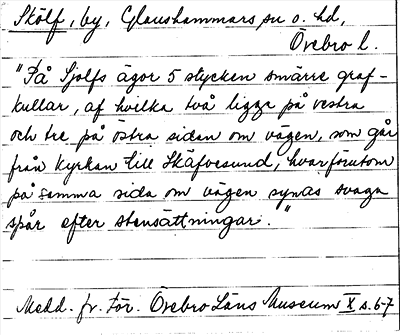 Skölf, by, Glanshammars sn o. hd,
Örebro l.
"På Sjölfs ägor 5 stycken smärre graf-
kullar, af hvilka två ligga på vestra
och tre på östra sidan om vägen, som går
från kyrkan till Skäfvesund, hvarförutom
på samma sida om vägen synas svaga
spår efter stensättningar."
Medd. fr. För. Örebro Läns Museum X s. 6-7